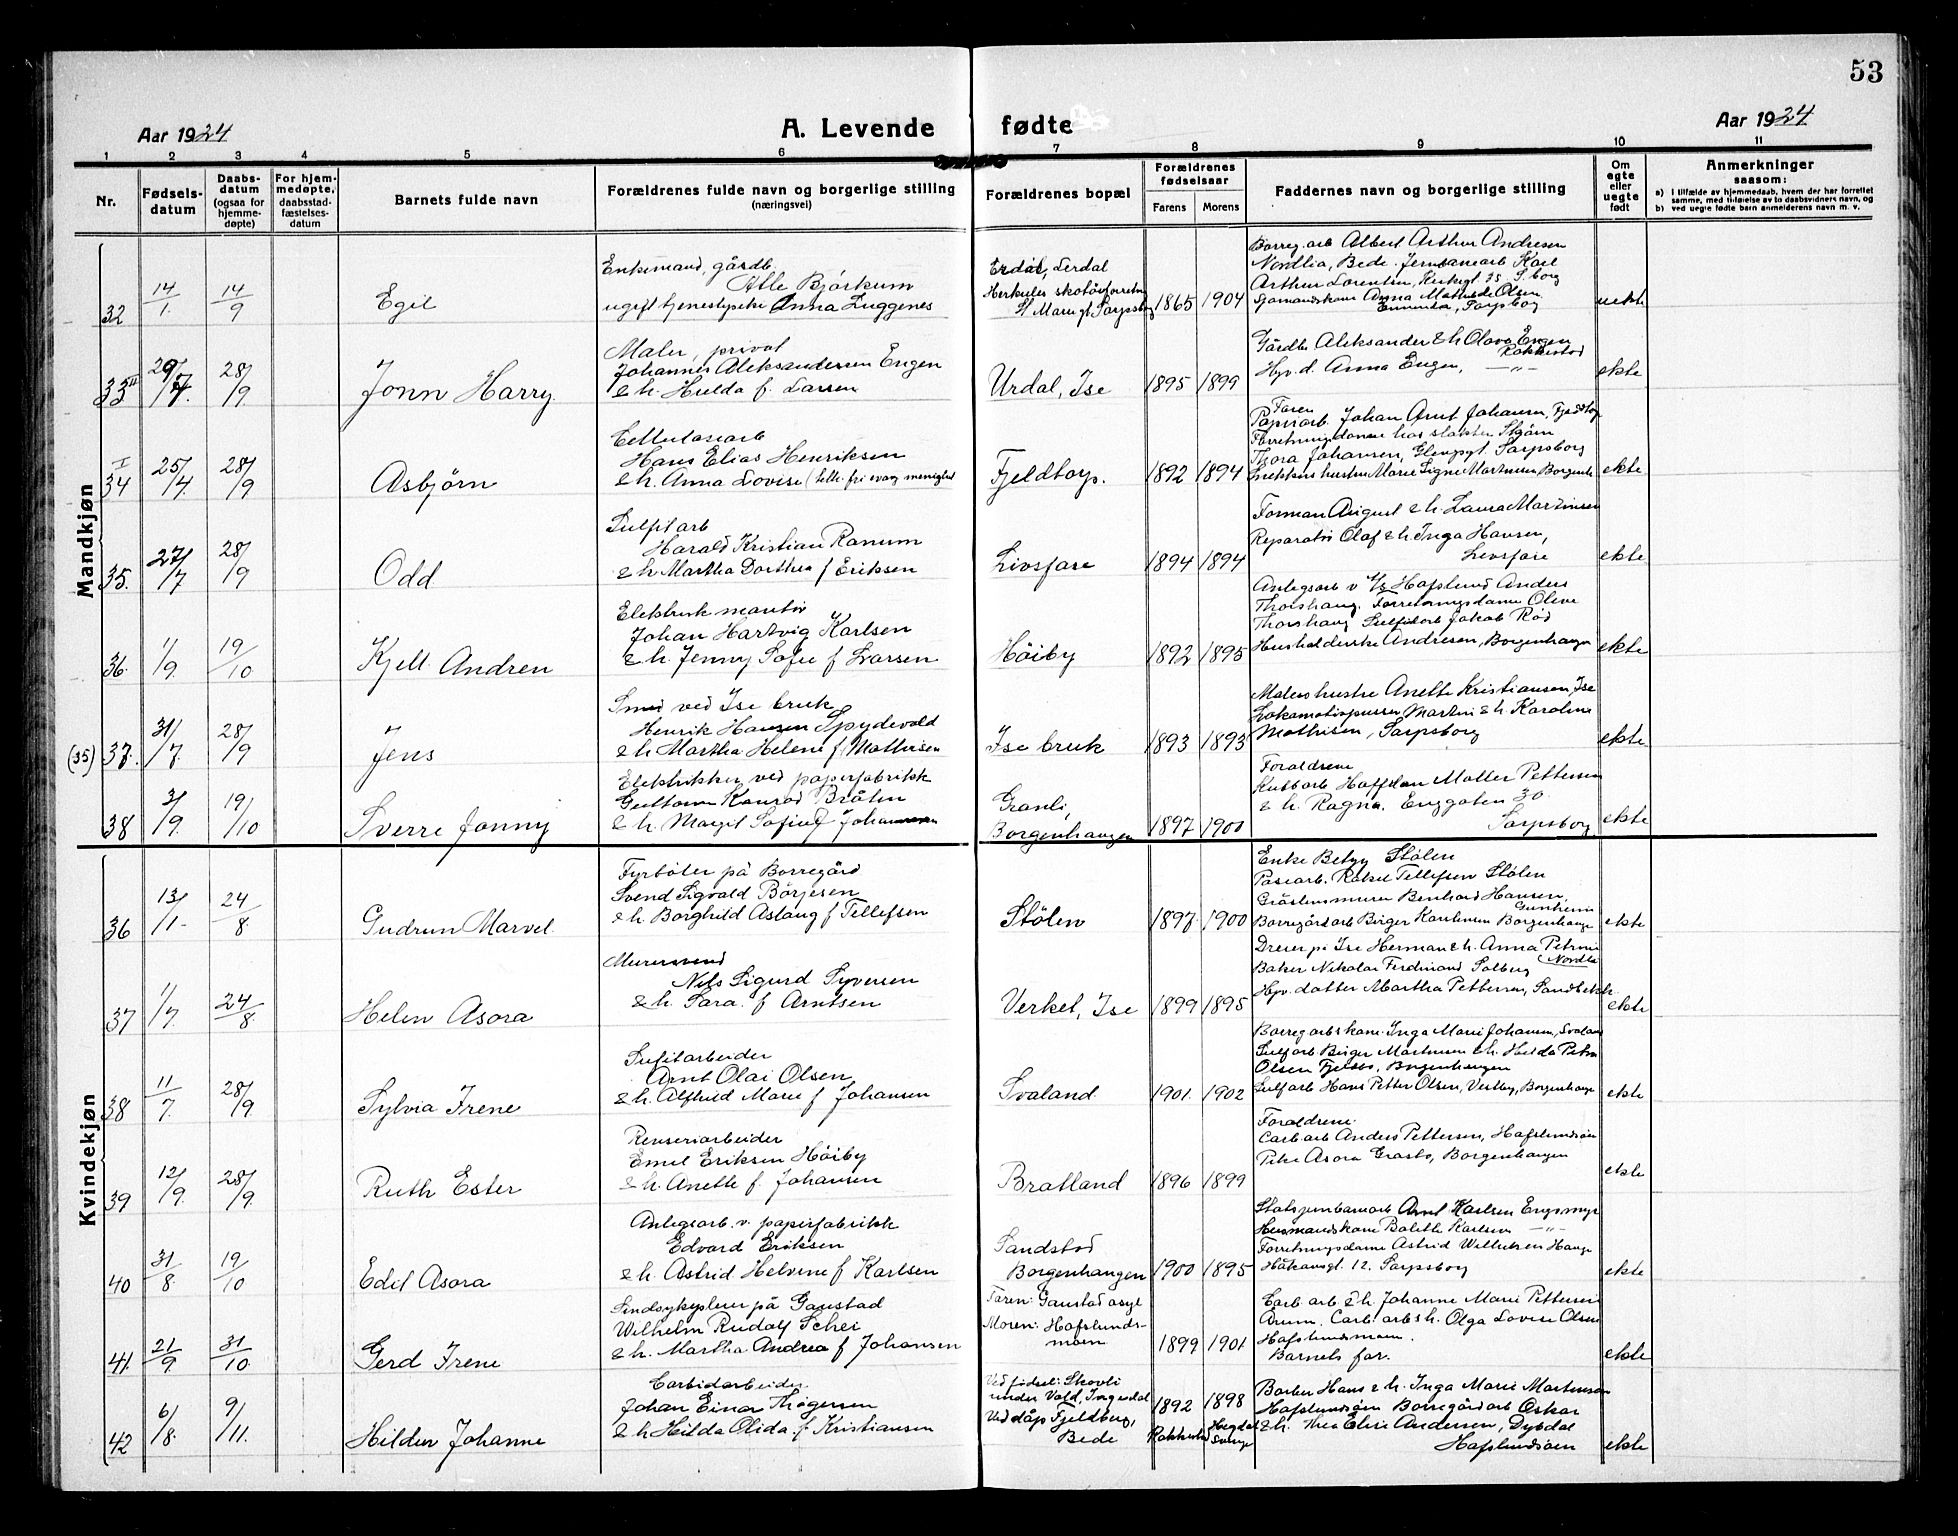 53
Aar 1924
A. Levende fødte
Aar 1924
1 2 3 4 5 6 7 8 9 10 11
Nr.
Fødsels-
datum
Daabs-
datum
(ogsaa for
hjemme-
døpte)
For hjem-
medøpte,
daabsstad-
fæstelses-
datum
Barnets fulde navn
Forældrenes fulde navn og borgerlige stilling
(næringsvei)
Forældrenes bopæl
Forældrenes
fødselsaar
Farens Morens
Faddernes navn og borgerlige stilling
Om
egte
eller
uegte
født
Anmerkninger
saasom:
a) I tilfælde av hjemmedaab, hvem der har forrettet
samme, med tilføielse av to daabsvidners navn, og
b) ved uegte fødte barn anmelderens navn m. v.
Mandkjøn
32 14/1. 14/9 Egil
Enkemand, gårdb.
Atle Bjørkum
ugift tjenestepike Anna Luggenes
Erdal, Lerdal
Herkules skotøvforretn
St Mariegt Sarpsborg
1865 1904
Borreg. arb Albert Arthur Andresen
Nordlia, Bede. Jernbanearb Karl
Arthur Lorentsen, Kirkegt 35 S.borg
Sjømandskone Anna Mathilde Olsen
Enninda, Sarpsborg
uekte
33 29/4. 28/9 Jonn Harry
Maler, privat
Johannes Aleksandersen Engen
& h. Hulda f. Larsen
Urdal, Ise
1895 1899
Gårdbr Aleksander & h Olava Engen
Rakkestad
Hjv. d. Anna Engen, —"—
ekte
34 25/4. 28/9 Asbjørn
Cellulosearb
Hans Elias Henriksen
& h. Anna Lovise (luth. fri evang menighet
Fjeldtorp.
1892 1894
Faren
Papirarb. Johan Arnt Johansen, Fjeldtorp
Forretningsdame hos slakter Skjørn
Thora Johansen, Glengsgt. Sarpsborg
Snekkers hustru Marie Signe Martinsen Borgenh
ekte
35. 27/7 28/9 Odd
Sulfitarb
Harald Kristian Ranum
& h Martha Dorthea f Eriksen
Livsfare
1894 1894
Forman August & h. Laura Martinsen
Reparatør Olaf & h. Inga Hansen,
Livsfare
ekte
36. 1/9. 19/10 Kjell Andren
Elektrisk montør
Johan Hartvig Karlsen
& h. Jenny Sofie f Larsen
Höiby
1892 1895
Anlegsarb v A/S Hafslund Anders
Thorshaug. Forretningsdame Olive
Thorshaug Sulfidarb Jakob Rød
Husholderske Andresen, Borgenhaugen
ekte
(35) 37. 31/7. 28/9 Jens
Smed ved Ise bruk
Henrik Hansen Spydevold
& h. Martha Helene f Mathisen
Ise bruk
1893 1893
Malers hustru Anette Kristiansen, Ise
Lokomotivpusser Martin & h Karoline
Mathisen, Sarpsborg
ekte
38 3/9. 19/10 Sverre Jonny
Elektriker ved papirfabrikk
Guttorm Konrad Bråten
& h. Margit Sofie f Johannesen
Granli,
Borgenhaugen
1897 1900
Forældrene
Kubbarb Haffdan Møller Pettersen
& h. Ragna, Enggaten 30.
Sarpsborg
ekte
Kvindekjøn
36 13/11- 24/8. Gudrun Marvel
Fyrbøter på Borregård
Svend Sigvald Börjesen
& h. Borghild Aslaug f Tellefsen
Stölen
1897 1900
Enke Betzy Stölen
Posearb. Rakel Tellefsen Stölen
Gråstensmurer Bernhard Hansen,
Gunheim
Borregårdarb Birger Karlsen Borgenhauge
ekte
37 1/7. 24/8. Helen Asora
Murersvend
Nils Sigurd Syversen
& h. Sara. f Arntsen
Verket, Ise
1899 1895
Dreier på Ise Herman & h. Anna Petrine
(Nordli
Baker Nikolai Ferdinand Solberg
Hjv. datter Martha Pettersen, Sandbekk.
ekte
38 11/7. 28/9. Sylvia Irene
Sulfitarbeider
Arnt Olai Olsen
& h. Alfhild Marie f Johansen
Svaland
1901. 1902
Borregarbskone Inga Marie Johansen, Svaland
Sulfarb Birger Martinsen & h. Hilda Petra
Olsen Fjeldbo, Borgenhaugen
Sulfarb Hans Petter Olsen, Vestby, Borgenhauge
ekte
39 12/9. 28/9. Ruth Ester
Renseriarbeider
Emil Eriksen Höiby
& h. Anette f. Johansen
Bratland
1896 1899
Foraldrene.
Carb arb Anders Pettersen, Hafslundsøen
Pike Asora Grasto, Borgenhaugen
ekte
40 31/8 19/10 Edit Asora
Anlegsarb. v. papirfabrikk
Edvard Eriksen
& h. Astrid Helvine f Karlsen
Sandstad
Borgenhaugen
1900 1895
Statsjernbanearb Arnt Karlsen Engsmyr
Husmandskone Bolette Karlsen —"—
Forretningsdame Astrid Williksen Hauge
Håkonsgt. 12. Sarpsborg
ekte
41. 21/9. 31/10. Gerd Irene
Sindsykepleier på Gaustad
Wilhelm Rudolf Schei
& h. Martha Andrea f Johansen
Faren: Gaustad asyl
Moren: Hafslunds-
moen
1899 1901
Carb. arb. & h. Johanne Marie Pettersen
Arum. Carb. arbs h. Olga Lovise Olsen
Hafslundsmoen.
Barnets far.
ekte
42 6/8. 9/11. Hildur Johanne
Carbidarbeider
Johan Einar Thögersen
& h Hilda Olida f Kristiansen
Ved födsel: Skovli
under Vold, Ingedal
Ved dåp Fjeldberg,
Bede
1892 1898
Rakkestad
Sverige
Barber Hans & h. Inga Marie Martinsen
Hafslundsøen Borregårdarb Oskar
& h. Thea Elise Andersen, Dybdal
Hafslundsøen
ekte